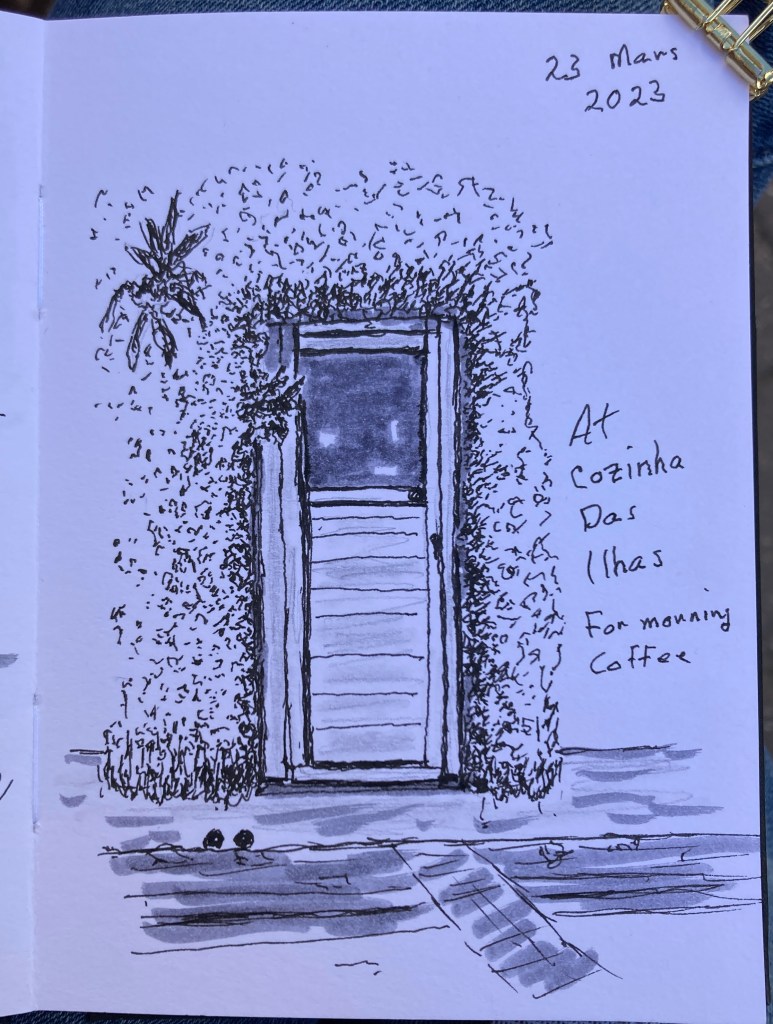 23 Mars
2023
At
Cozinha
Das
Ilhas
For morning
Coffee